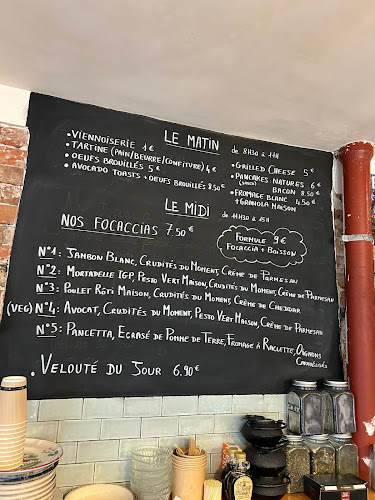 LE MATIN de 8H30 à 11H
• VIENNOISERIE 1€
• TARTINE (PAIN/BEURRE/CONFITURE) 4€
• OEUFS BROUILLÉS 5€
• AVOCADO TOASTS + OEUFS BROUILLÉS 8.50€
• GRILLED CHEESE 5€
• PANCAKES NATURES 6€
BACON 8.50€
• FROMAGE BLANC 4.50€
+ GRANOLA MAISON
LE MIDI de 11H30 à 15H
NOS FOCACCIAS 7.50€
FORMULE 9€
FOCACCIA + BOISSON
N°1: JAMBON BLANC, CRUDITÉS DU MOMENT, CRÈME DE PARMESAN
N°2: MORTADELLE IGP, PESTO VERT MAISON, CRUDITÉS DU MOMENT, CRÈME DE PARMESAN
N°3: POULET RÔTI MAISON, CRUDITÉS DU MOMENT, CRÈME DE CHEDDAR
(VEG) N°4: AVOCAT, CRUDITÉS DU MOMENT, PESTO VERT MAISON, CRÈME DE PARMESAN
N°5: PANCETTA, ECRASÉ DE POMME DE TERRE, FROMAGE À RACLETTE, OIGNONS
CARAMÉLISÉS
• VELOUTÉ DU JOUR 6.90€